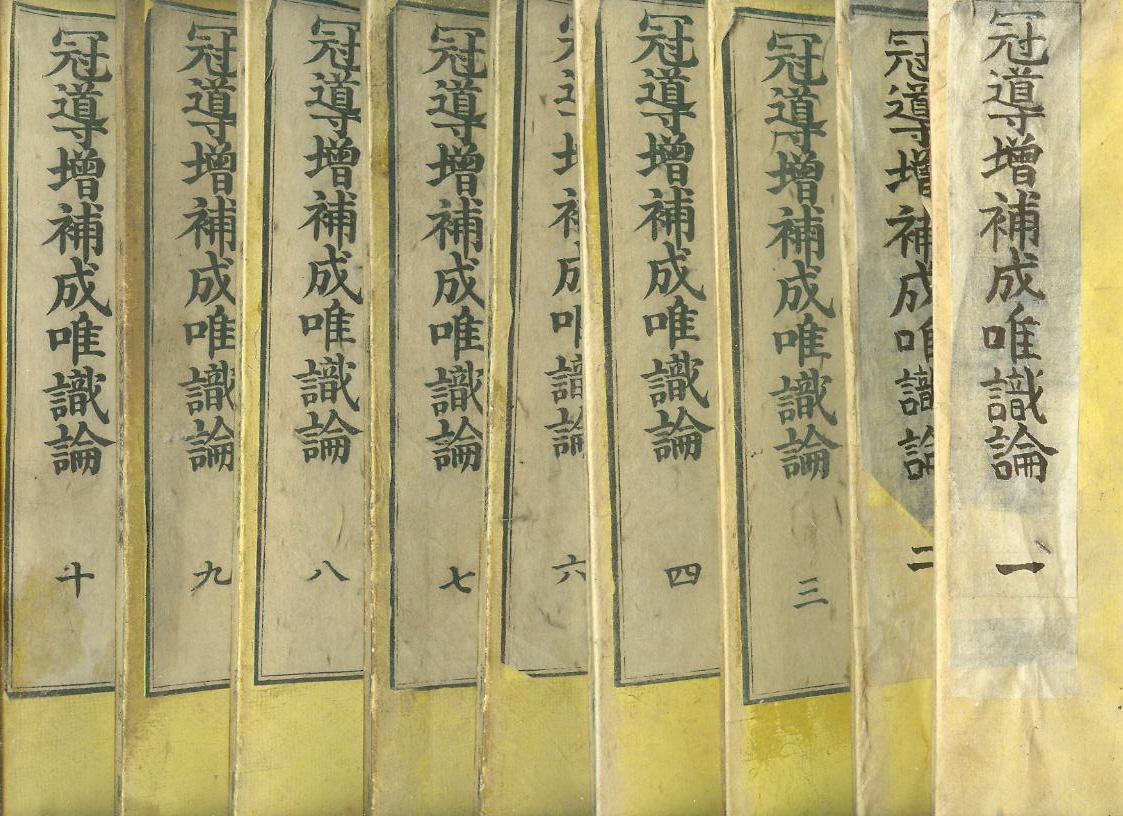 冠導增補成唯識論 一
冠導增補成唯識論 二
冠導增補成唯識論 三
冠導增補成唯識論 四
冠導增補成唯識論 六
冠導增補成唯識論 七
冠導增補成唯識論 八
冠導增補成唯識論 九
冠導增補成唯識論 十